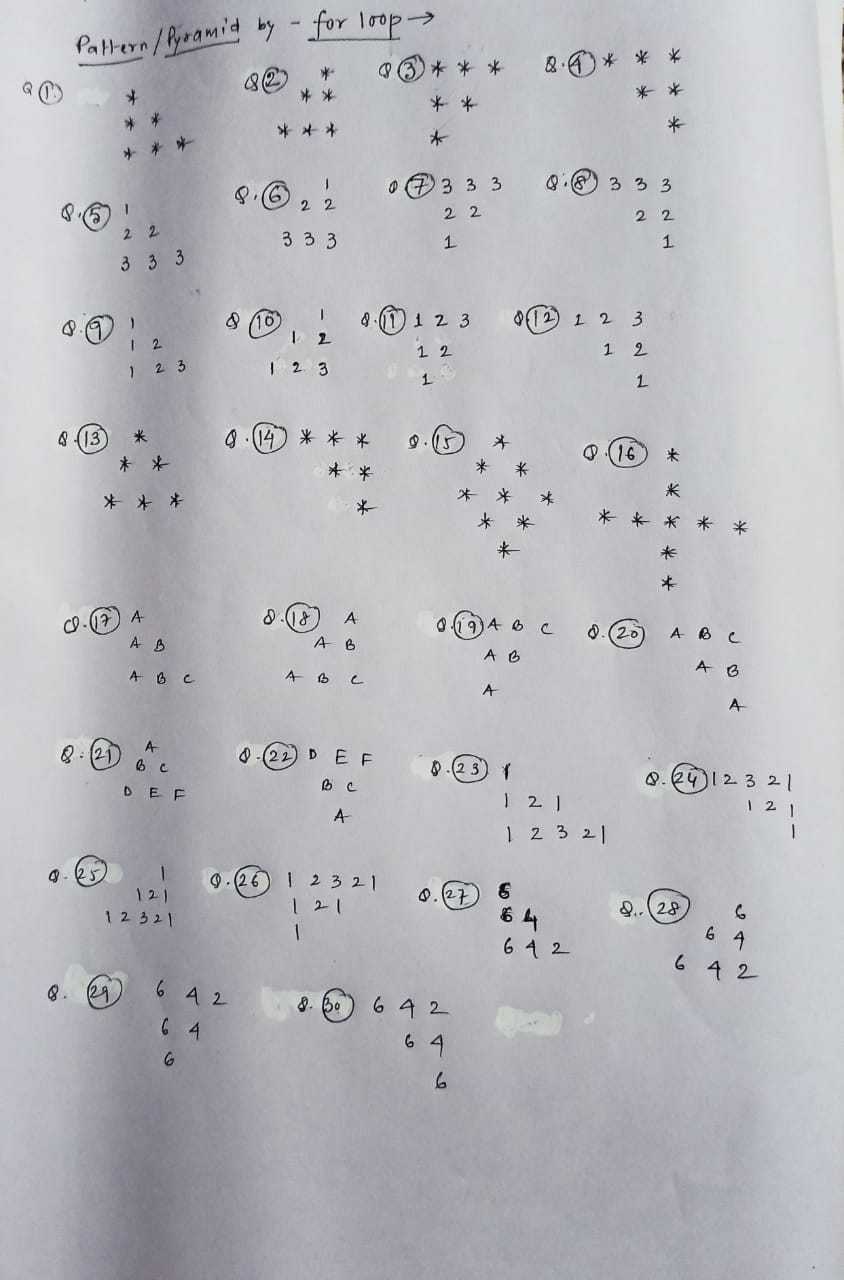 Pattern/Pyramid by - for loop →
Q ① 
*
* *
* * *
Q ②
*
* *
* * *
Q ③ * * *
* *
*
Q. ④ * * *
* *
*
Q. ⑤ 1
2 2
3 3 3
Q. ⑥ 1
2 2
3 3 3
Q ⑦ 3 3 3
2 2
1
Q. ⑧ 3 3 3
2 2
1
Q. ⑨ 1
1 2
1 2 3
Q ⑩ 1
1 2
1 2 3
Q. ⑪ 1 2 3
1 2
1
Q ⑫ 1 2 3
1 2
1
Q. ⑬ *
* *
* * *
Q. ⑭ * * *
* *
*
Q. ⑮ *
* *
* * *
* *
*
Q. ⑯ *
*
* * * * *
*
*
Q. ⑰ A
A B
A B C
Q. ⑱ A
A B
A B C
Q. ⑲ A B C
A B
A
Q. ⑳ A B C
A B
A
Q. ㉑ A
B C
D E F
Q. ㉒ D E F
B C
A
Q. ㉓ 1
1 2 1
1 2 3 2 1
Q. ㉔ 1 2 3 2 1
1 2 1
1
Q. ㉕ 1
1 2 1
1 2 3 2 1
Q. ㉖ 1 2 3 2 1
1 2 1
1
Q. ㉗ 6
6 4
6 4 2
Q.. ㉘ 6
6 4
6 4 2
Q. ㉙ 6 4 2
6 4
6
Q. ㉚ 6 4 2
6 4
6